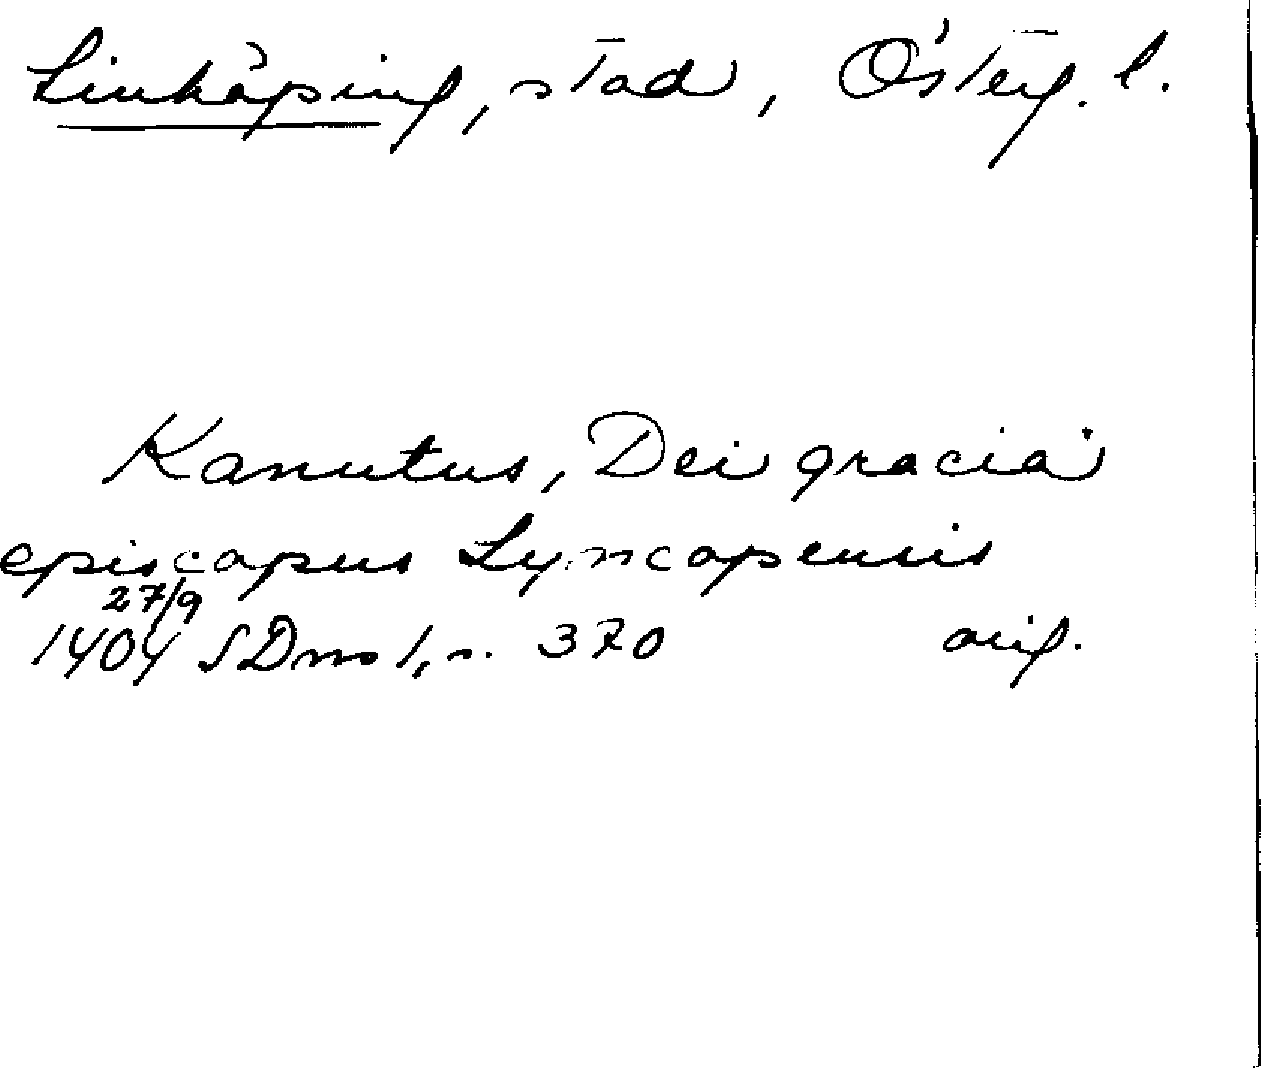 Linköping, stad, Österg. l.
Kanutus, Dei gracia
episcopus Lyncopensis
27/9
1404 SDns 1, s. 370 orig.